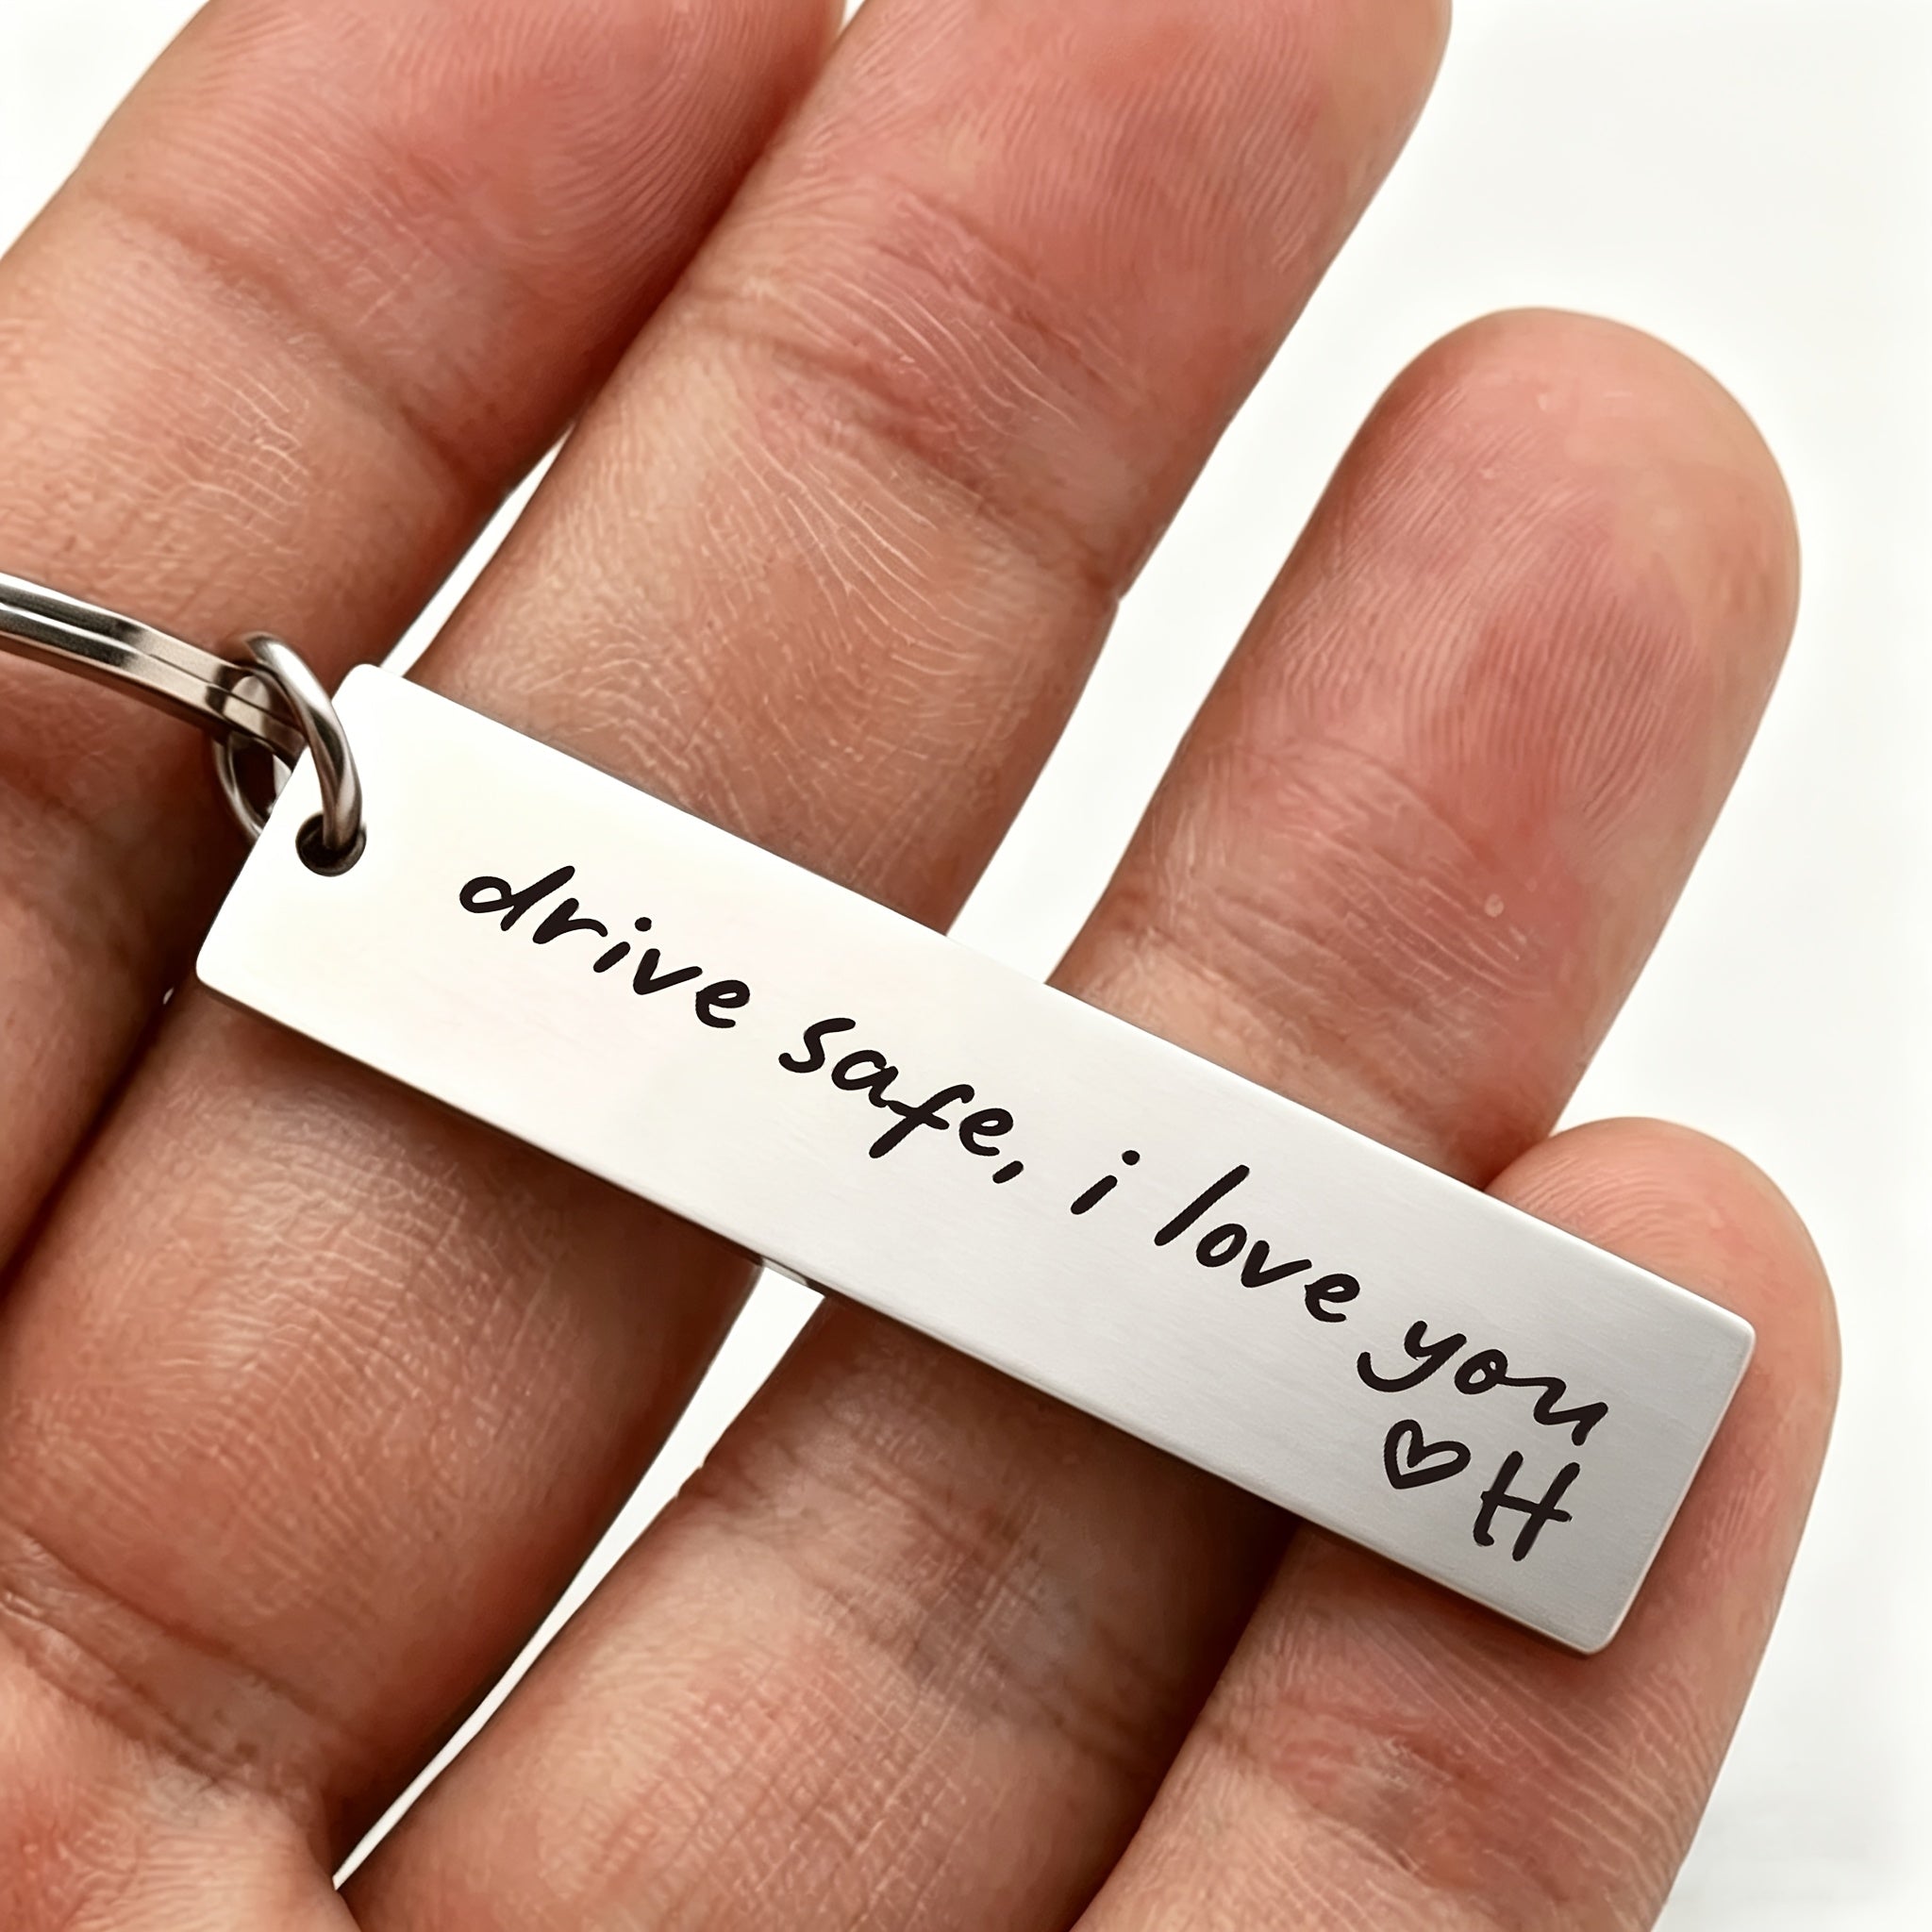 drive safe, i love you
♡H